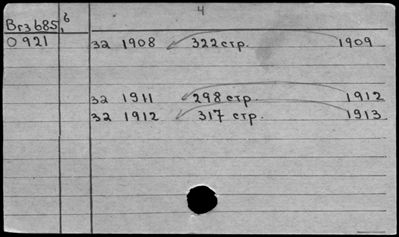 4
Вг3685,6
0921
32 1908 322 стр. 1909
32 1911 298 стр. 1912
32 1912 317 стр. 1913